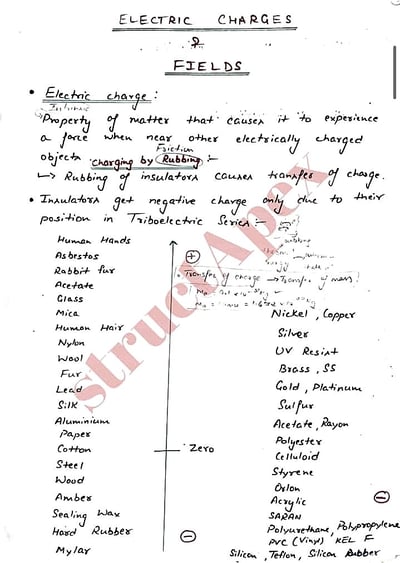 ELECTRIC CHARGES
&
FIELDS
• Electric charge :
Intrinsic
Property of matter that causes it to experience
a force when near other electrically charged
Friction
objects charging by Rubbing :-
↳ Rubbing of insulators causes transfer of charge.
• Insulators get negative charge only due to their
position in Triboelectric Series :-
rubbing
Transfer of charge → Transfer of mass
Human Hands
Asbestos
Rabbit fur
Acetate
Glass
Mica
Human Hair
Nylon
Wool
Fur
Lead
Silk
Aluminium
Paper
Cotton
Steel
Wood
Amber
Sealing Wax
Hard Rubber
Mylar
+
Zero
-
Nickel, Copper
Silver
UV Resist
Brass, SS
Gold, Platinum
Sulfur
Acetate, Rayon
Polyester
Celluloid
Styrene
Orlon
Acrylic
SARAN
Polyurethane, Polypropylene
PVC (Vinyl) KEL F
Silicon, Teflon, Silicon Rubber
-
structApex